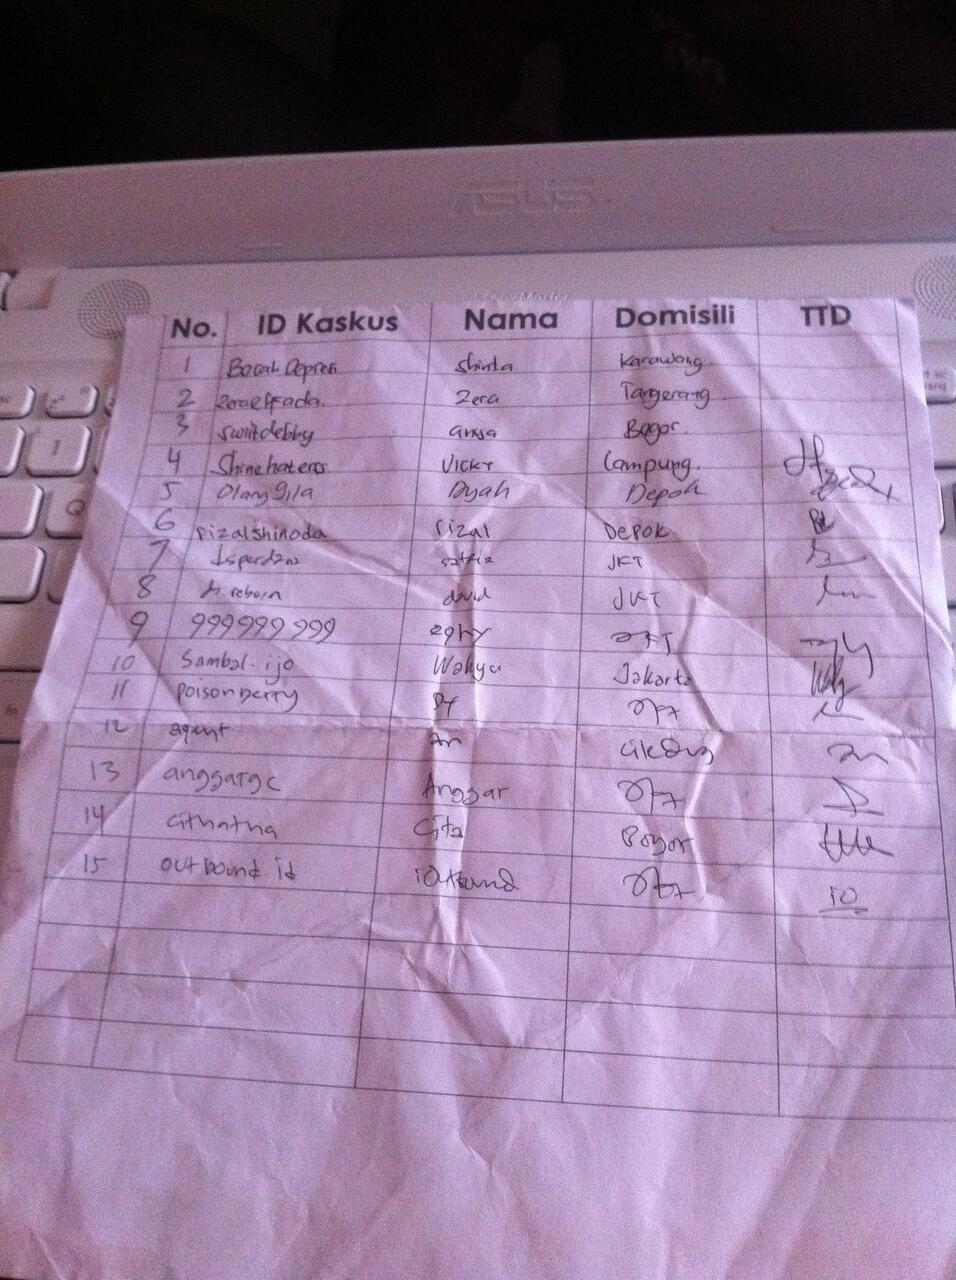 ASUS
No. ID Kaskus Nama Domisili TTD
1 Bocah Depresi Shinta Karawang
2 Zera Tangerang
3 switdebby anisa Bogor
4 Shinehateros VICKY Lampung.
5 Olang Gila Dyah Depok
6 rizalshinoda rizal DEPOK
7 satria JKT
8 reborn david JKT
9 999 999 999 eghy JKT
10 Sambal.ijo Wahyu Jakarta
11 poisonberry
12 agent an
13 anggargc Anggar
14 Cita Bogor
15 outbound.id